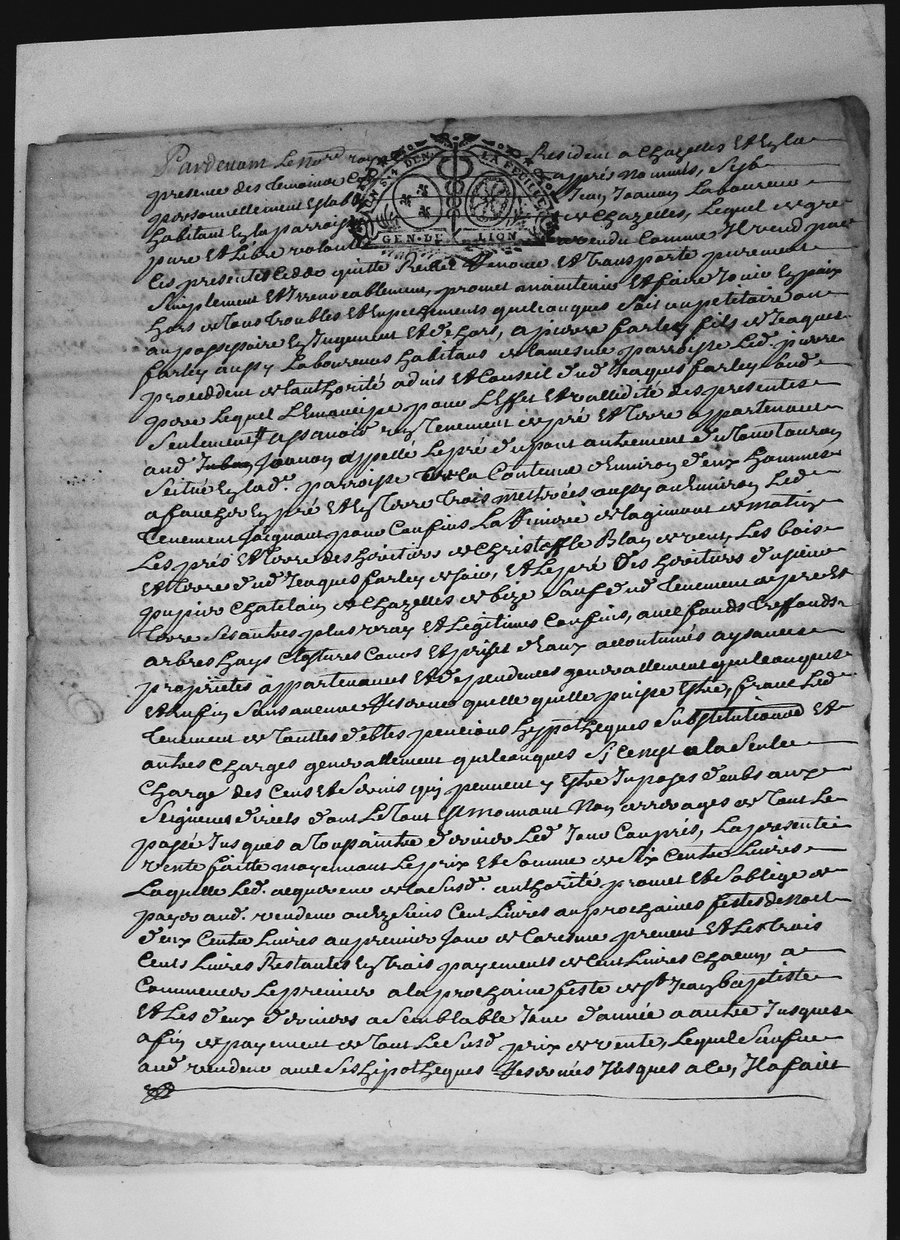 Pardevant le No.re roy Resident a Chazelles Et Eyla
presence des temoins apprés Nommés, s'est
personnellement Estably Jean Joanon Laboureur
habitant Eyla parroisse de Chazelles, Lequel de gre
pure et Libre volonte a vendu Comme Il vend par
Ces presentes Cedde quitte Remet Renonce Et transporte purement
simplement et Irrevocablement, promet maintenir Et faire Jouir Ey paix
hors de tous troubles Et Enpechements quelconques soit au petitoire ou
au possessoire Ey Jugement Et dehors, a pierre farley fils de Jeaques
farley aussy Laboureurs habitans de la mesme parroisse Led. pierre
proceddent de l'authorité advis Et Conseil dud Jeaques farley sond
pere Lequel L'Emancipe pour L'Effet Et vallidité des presentes
seulement assavoir un tenement de pré Et terre appartenant
aud Joanon appellé Le pré du pont autrement
scitué Eylad. parroisse de la Contenue d'Environ deux hommes
a faucher Ey pré Et Ey terre trois metterées aussy ou Environ Led
tenement Joignant pour Confins La Riviere de la gimont de matin
Les prés Et terre des heritiers de Christoffle Blan de vent, Les bois
Et terres dud Jeaques farley de soir, Et Le pré des heritiers du sieur
pupier Chatelain de Chazelles de bize sauf dud tenement de pré Et
terre ses autres plus vray Et Legitimes Confins, avec fonds treffonds
arbres hays Clostures Cours Et prises d'Eaux accoutumés aysances
proprietes appartenances Et dependences generallement quelconques
Et Enfin sans aucune Reserve quelle quelle puisse Estre, franc Led
tenement de touttes debtes pencions hypotheques substitutions Et
autres Charges generallement quelconques si ce n'est a la seulle
Charge des Cens Et servis quy peuvent y Estre Inposes deubs aux
seigneurs directs dont Le tout Est mouvant Non arrerages de tout Le
passé Jusques a toussaintz dernier Led Jour Compris, La presente
vente faitte moyennant Le prix Et somme de six Centz Livres
Laquelle Led. acquereur de la susd. authorité promet Et s'oblige de
payer aud. vendeur Cent Livres au prochaines festes de Noel
deux Centz Livres au premier Jour de Caresme prenent Et Les trois
Cents Livres Restantes Ey trois payements de Cent Livres chacun a
Commencer Le premier a la prochaine feste de St Jean baptiste
Et Les deux derniers a semblable Jour d'année a autre Jusques
a fin de payement de tout Le susd prix de vente, Lequel
aud vendeur avec ses hipotheques Reservées Jusques a ce, Il a fait
GEN. DE LION